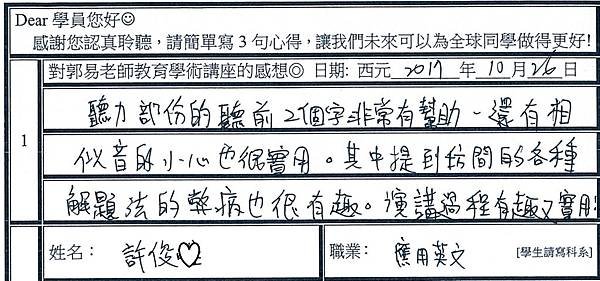 Dear 學員您好☺
感謝您認真聆聽，請簡單寫 3 句心得，讓我們未來可以為全球同學做得更好!
對郭易老師教育學術講座的感想◎ 日期: 西元 2017 年 10 月 26 日
1
聽力部份的聽前2個字非常有幫助，還有相
似音的小心也很實用。其中提到坊間的各種
解題法的弊病也很有趣。演講過程有趣又實用!
姓名： 許俊♡ 職業： 應用英文 [學生請寫科系]